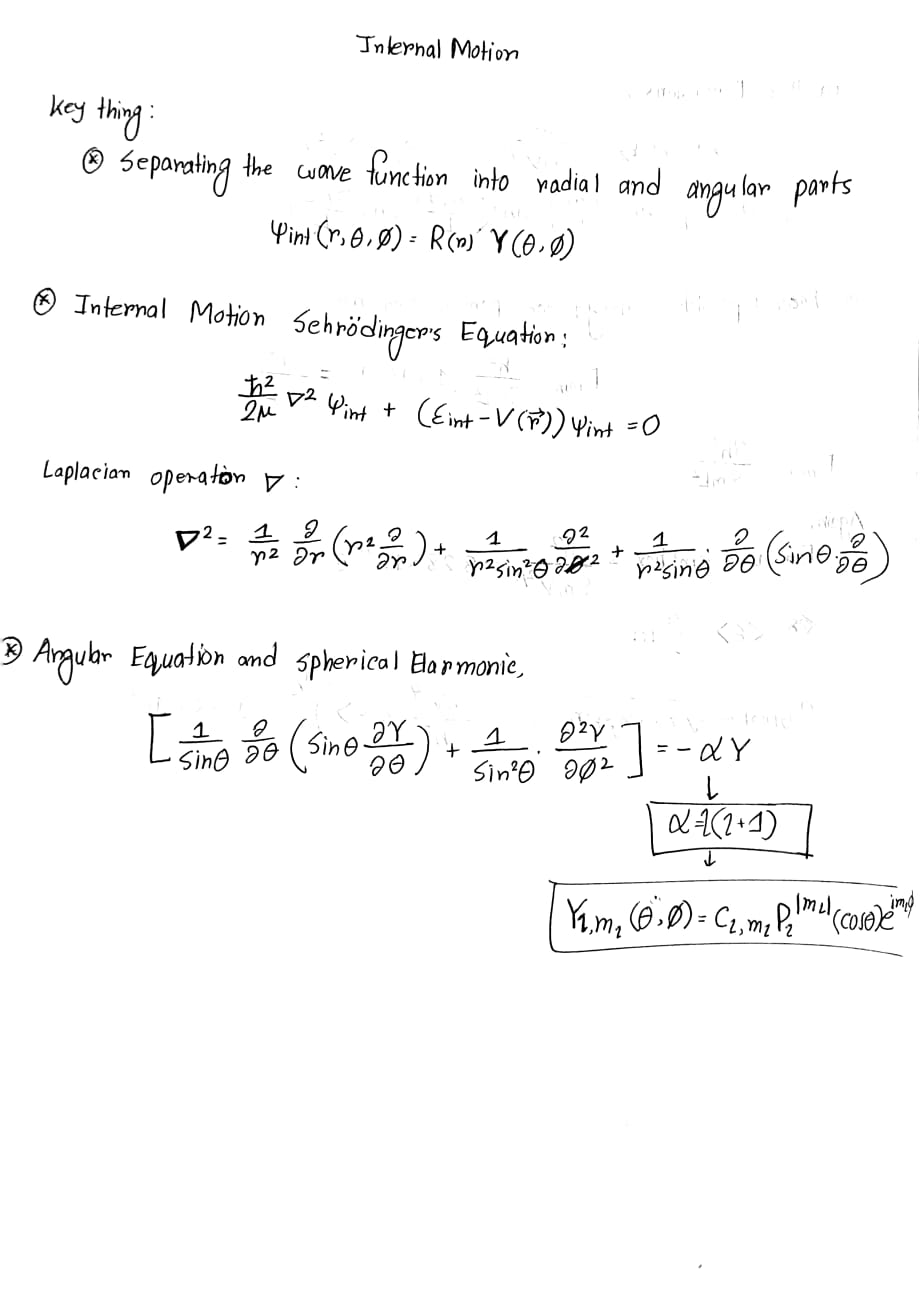 Internal Motion
Key thing:
⊛ Separating the wave function into radial and angular parts
Ψint (r, θ, ø) = R(r) Y(θ, ø)
⊛ Internal Motion Schrödinger's Equation:
ħ²/2μ ∇² Ψint + (Ɛint - V(r⃗)) Ψint = 0
Laplacian operator ∇:
∇² = 1/r² ∂/∂r (r² ∂/∂r) + 1/r²sin²θ ∂²/∂ø² + 1/r²sinθ · ∂/∂θ (sinθ · ∂/∂θ)
⊛ Angular Equation and Spherical Harmonic,
[1/sinθ ∂/∂θ (sinθ ∂Y/∂θ) + 1/sin²θ · ∂²Y/∂ø²] = - αY
↓
α = l(l+1)
↓
Yl,ml (θ, ø) = Cl,ml Pl^|ml| (cosθ) e^imlø